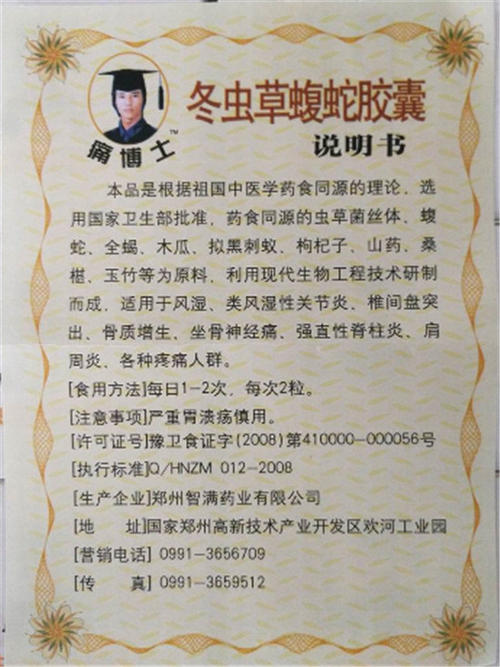 冬虫草蝮蛇胶囊
痛博士™
说明书
本品是根据祖国中医学药食同源的理论，选
用国家卫生部批准，药食同源的虫草菌丝体、蝮
蛇、全蝎、木瓜、拟黑刺蚁、枸杞子、山药、桑
椹、玉竹等为原料，利用现代生物工程技术研制
而成，适用于风湿、类风湿性关节炎、椎间盘突
出、骨质增生、坐骨神经痛、强直性脊柱炎、肩
周炎、各种疼痛人群。
[食用方法]每日1-2次，每次2粒。
[注意事项]严重胃溃疡慎用。
[许可证号]豫卫食证字(2008)第410000-000056号
[执行标准]Q/HNZM 012-2008
[生产企业]郑州智满药业有限公司
[地 址]国家郑州高新技术产业开发区欢河工业园
[营销电话] 0991-3656709
[传 真] 0991-3659512